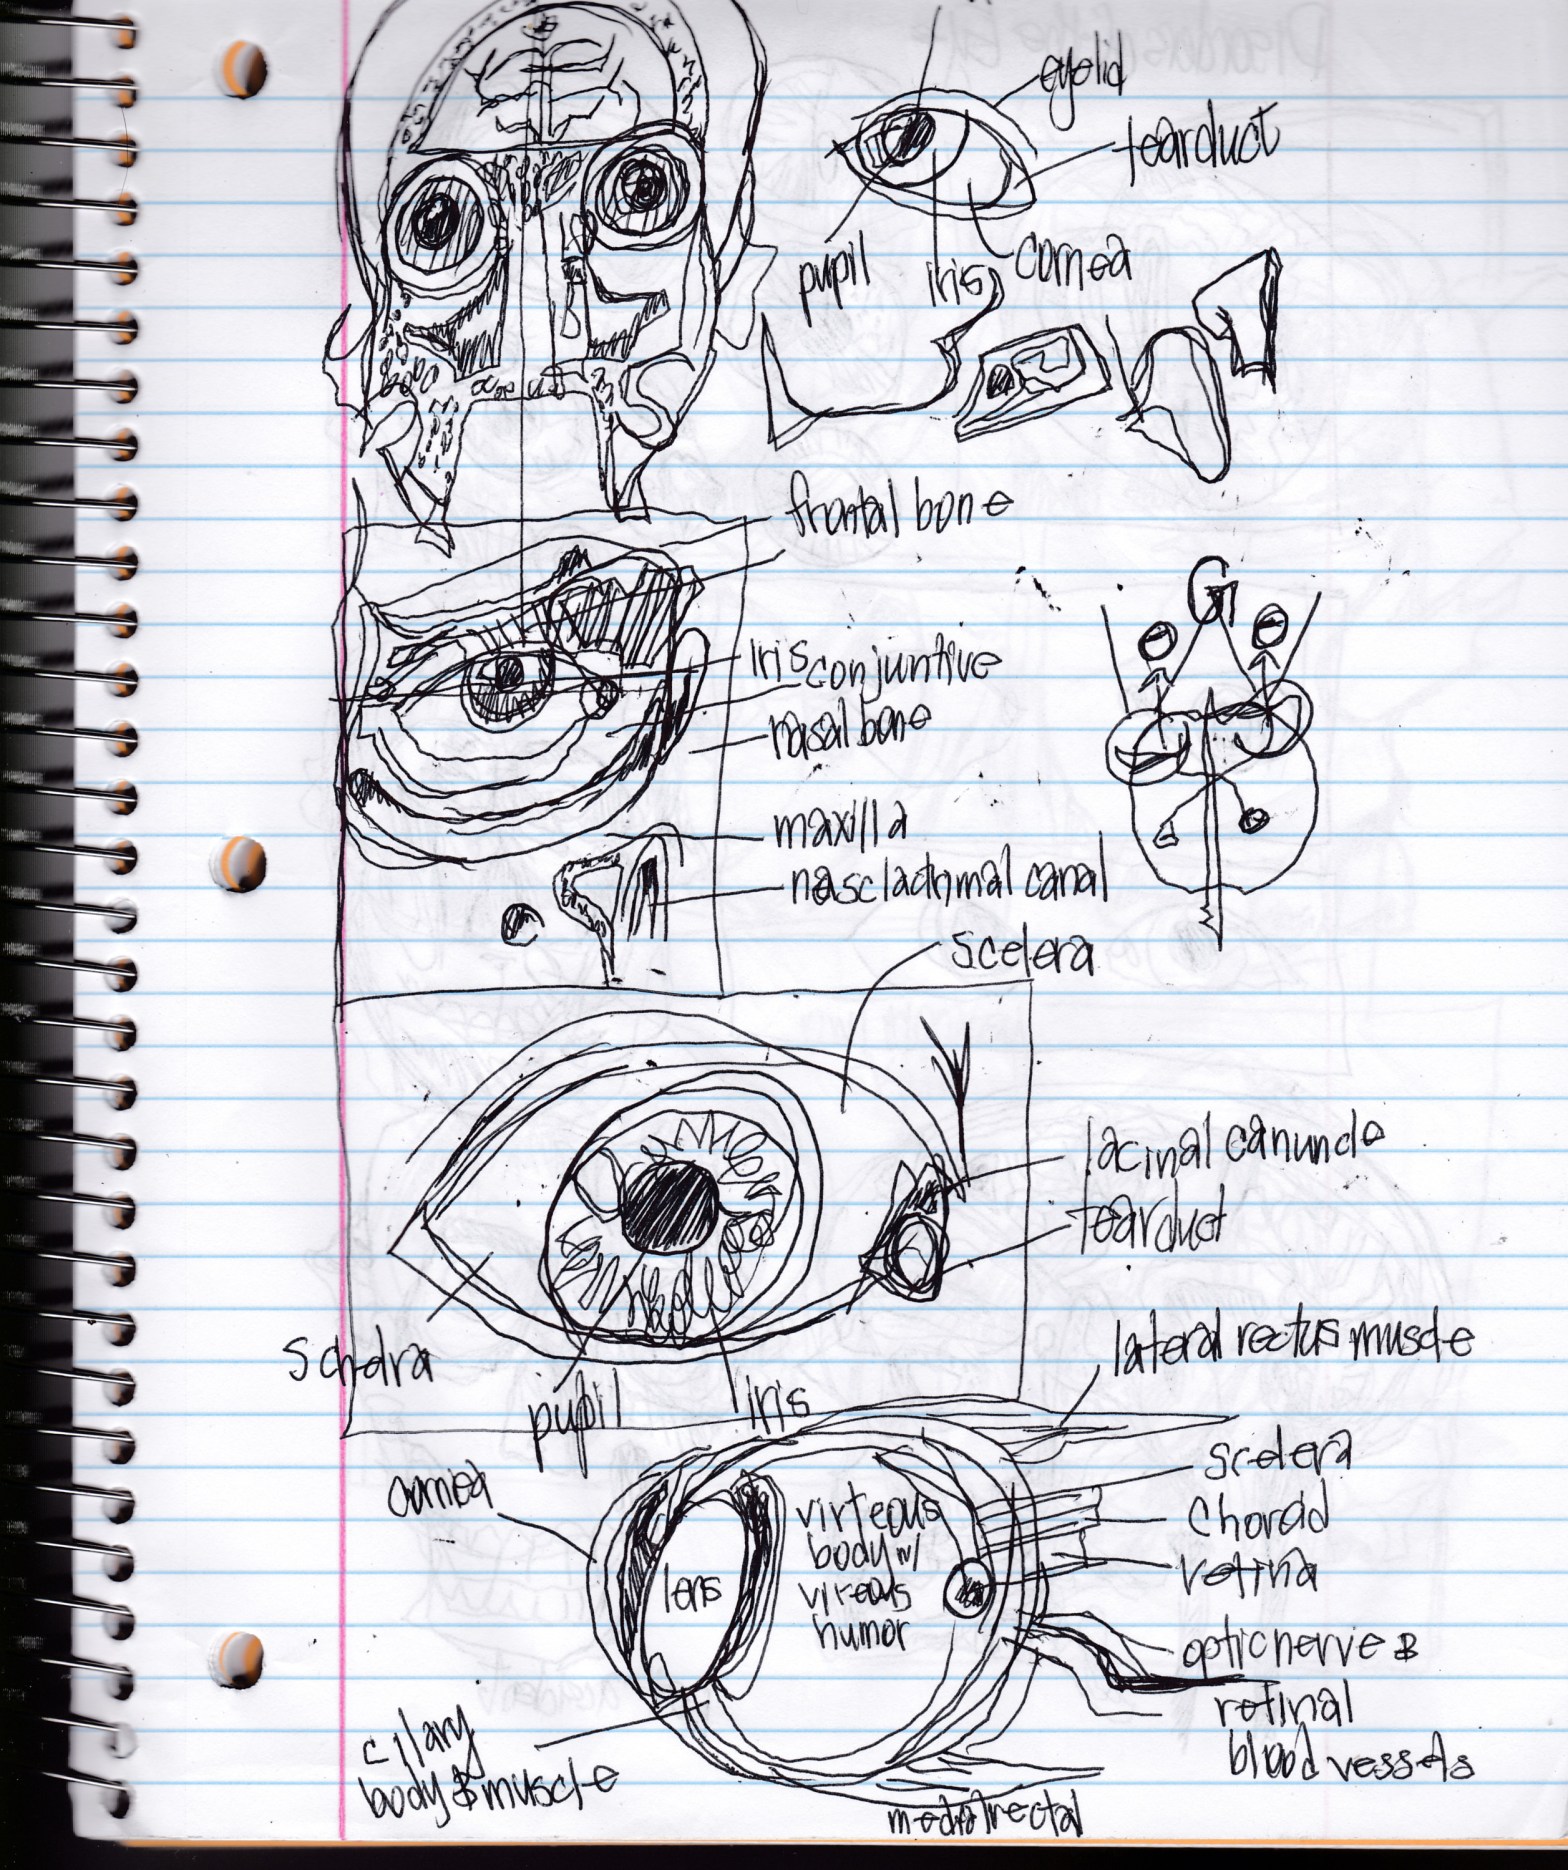 eyelid
tearduct
pupil
iris
cornea
frontal bone
G
iris
conjuntive
nasal bone
maxilla
nasclachrmal canal
scelera
lacinal canuncle
tearduct
schelra
pupil
iris
lateral rectus muscle
cornea
scelera
choroid
retina
lens
virteous
body w/
vireous
humor
optic nerve &
retinal
blood vessels
cilary
body & muscle
medial rectal